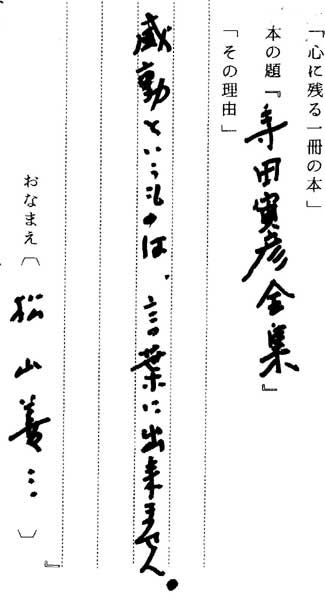 「心に残る一冊の本」
本の題『寺田寅彦全集』
「その理由」
感動というものは、言葉に出来ません。
おなまえ〔松山善三〕』